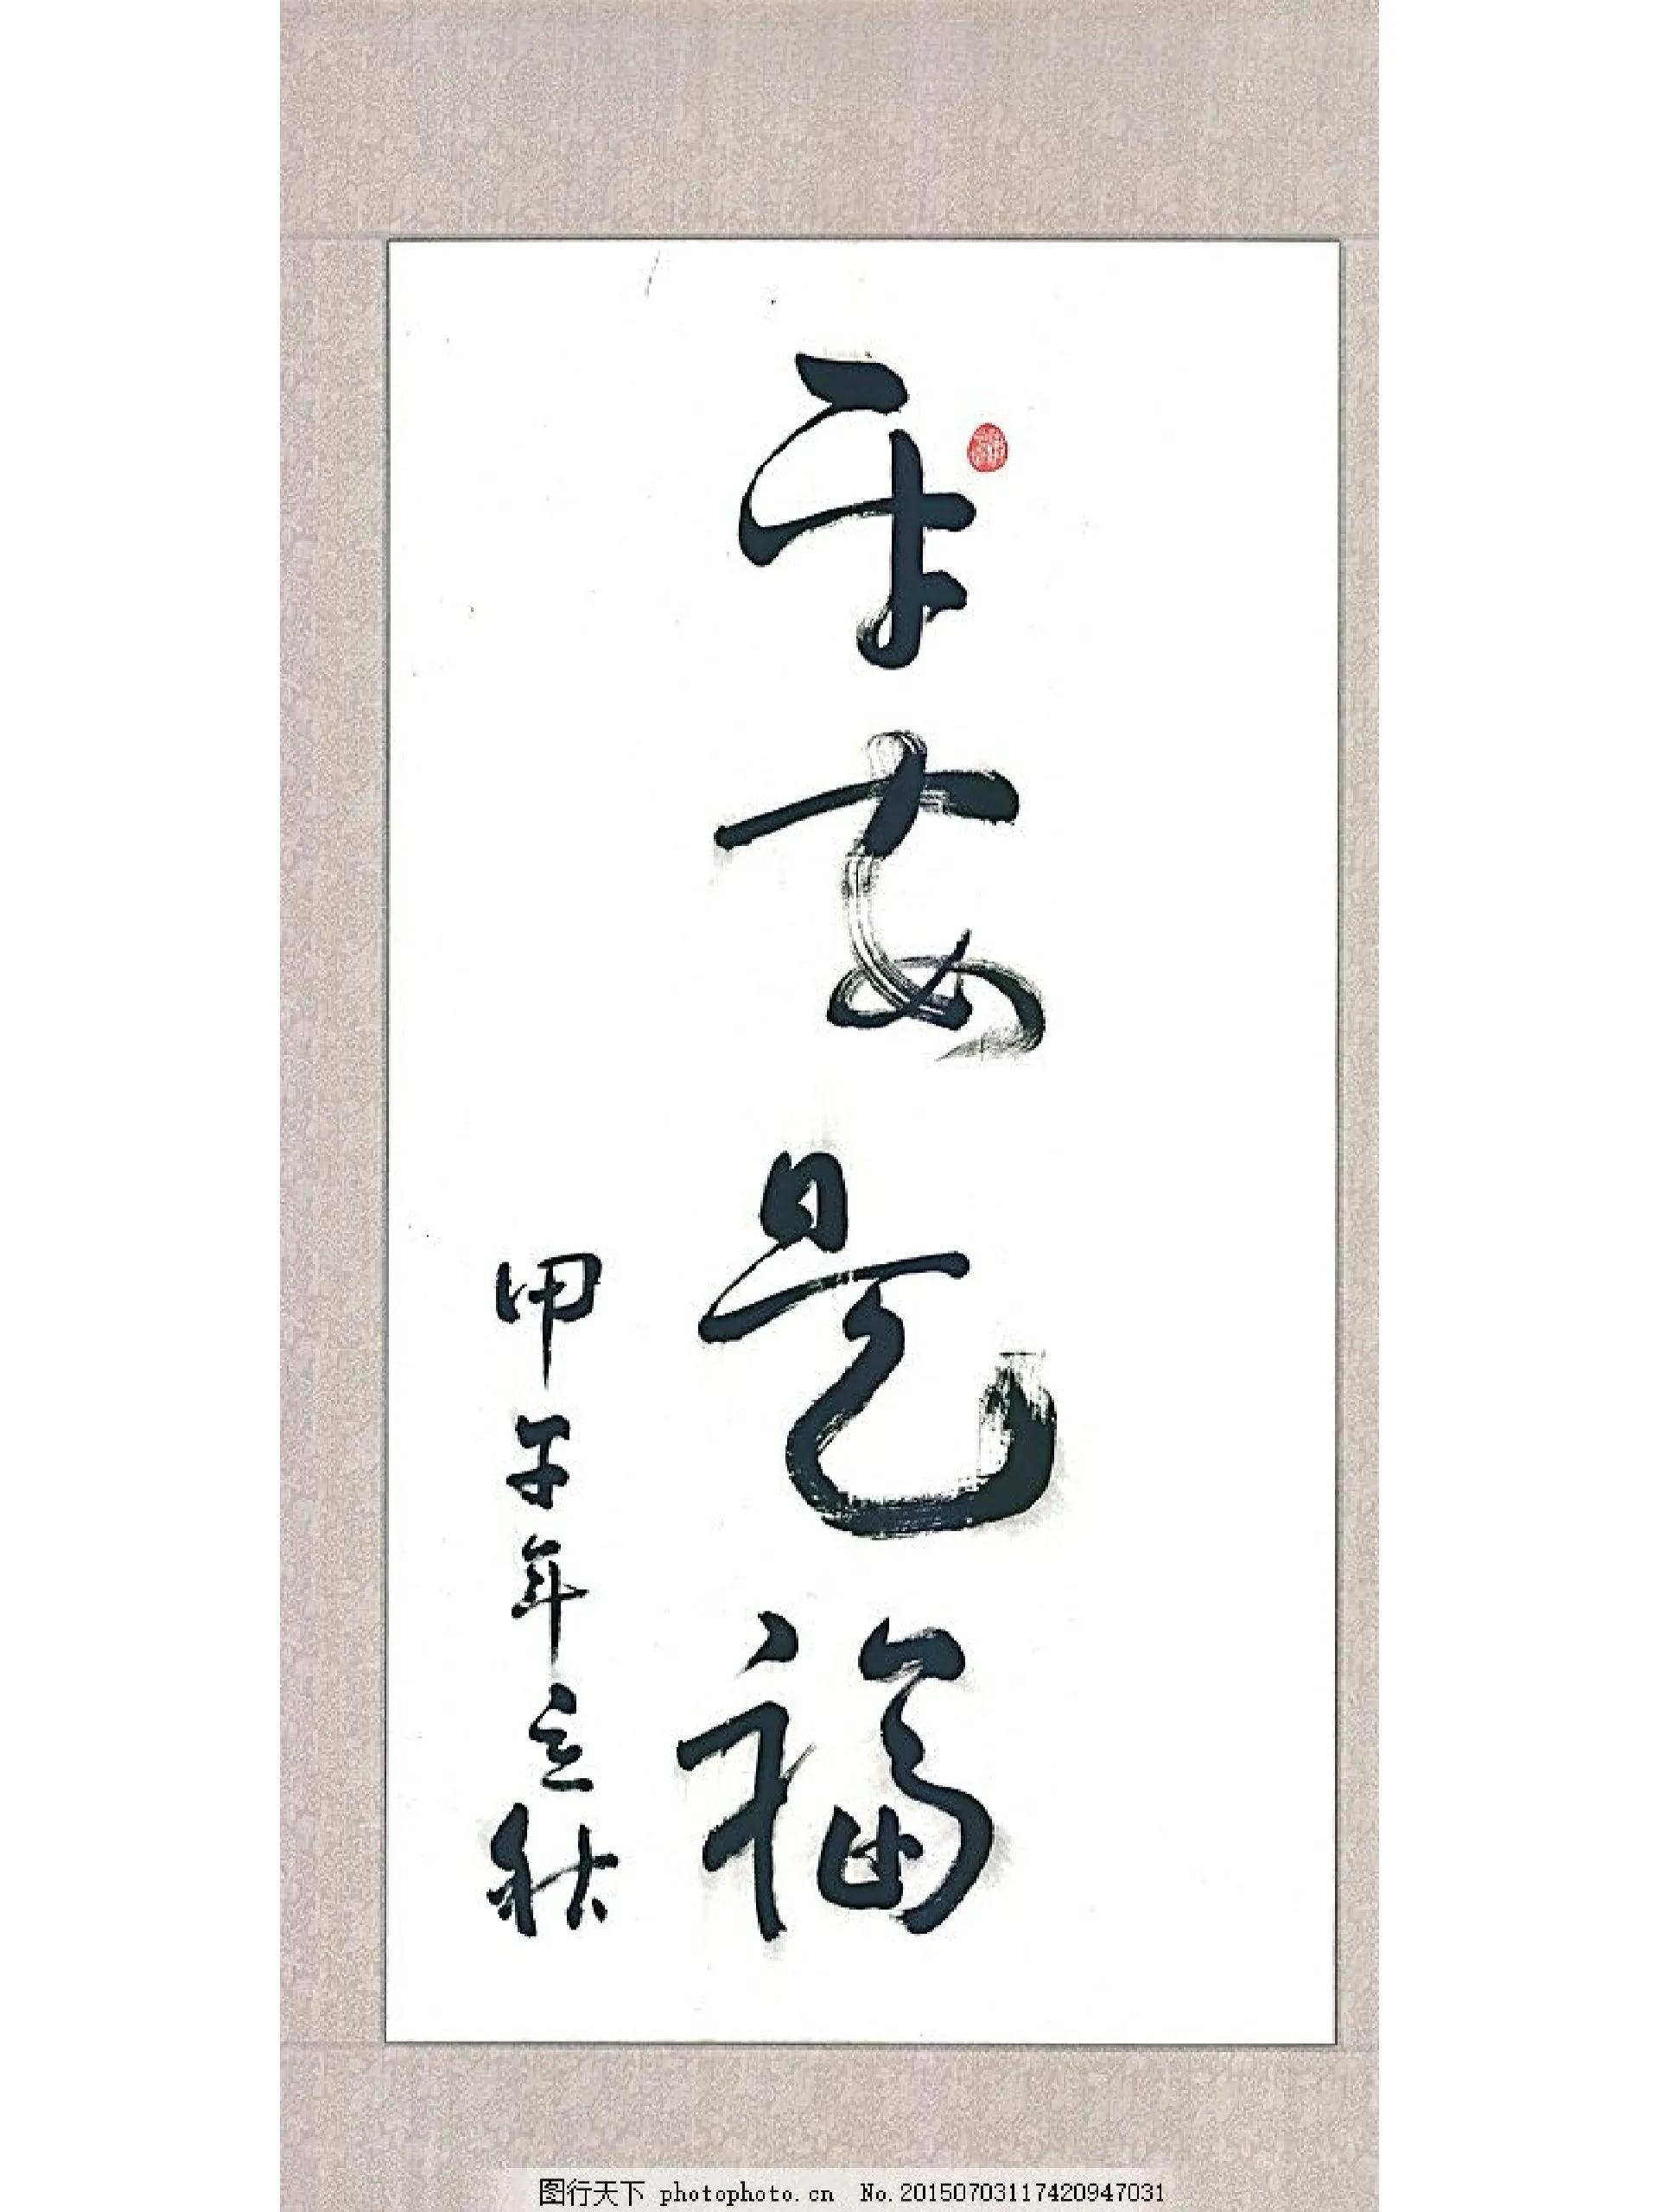 平安是福
甲午年立秋
图行天下 photophoto.cn No.20150703117420947031